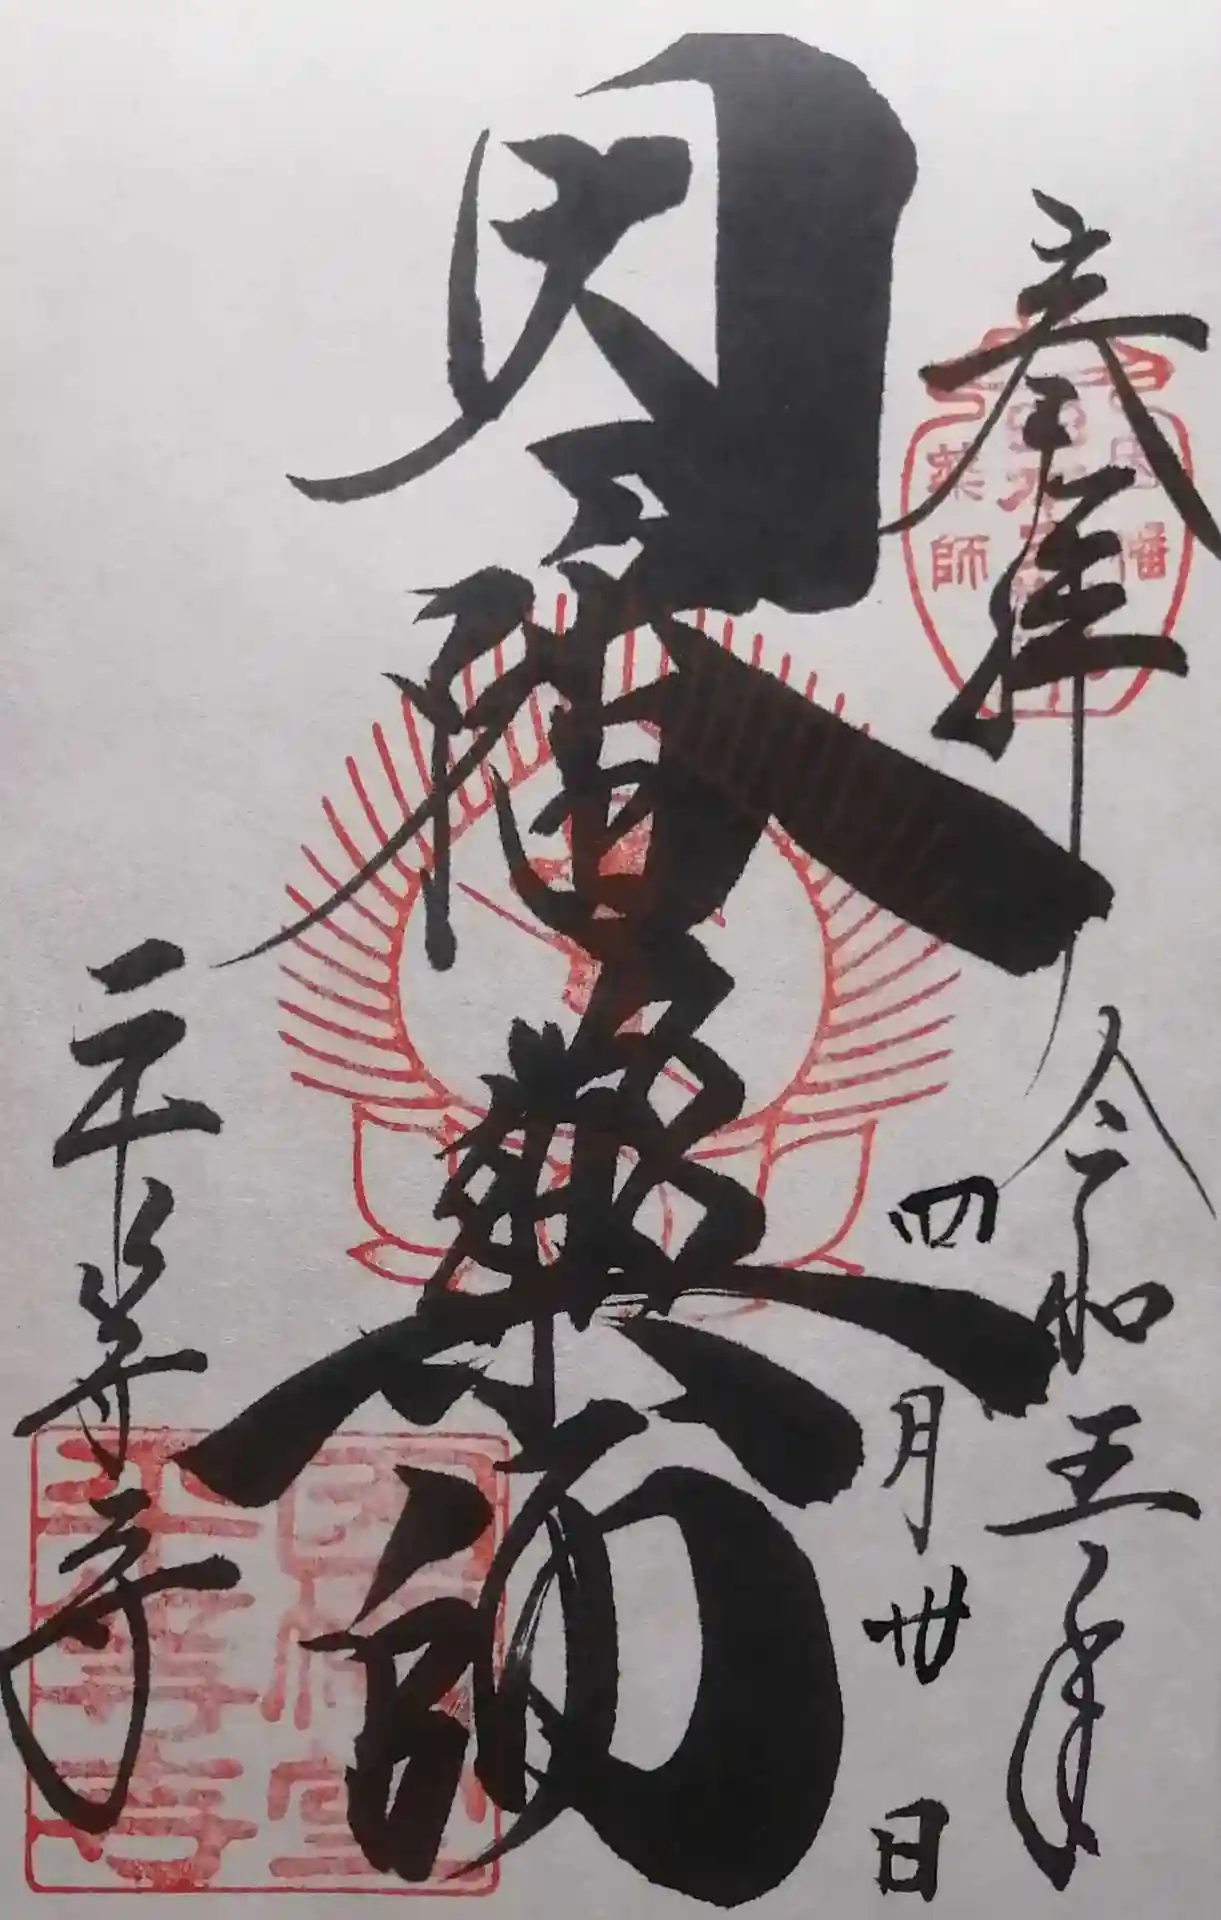 奉拝
令和五年
四月丗日
因幡薬師
平等寺
因幡
薬師
因幡堂
平等寺